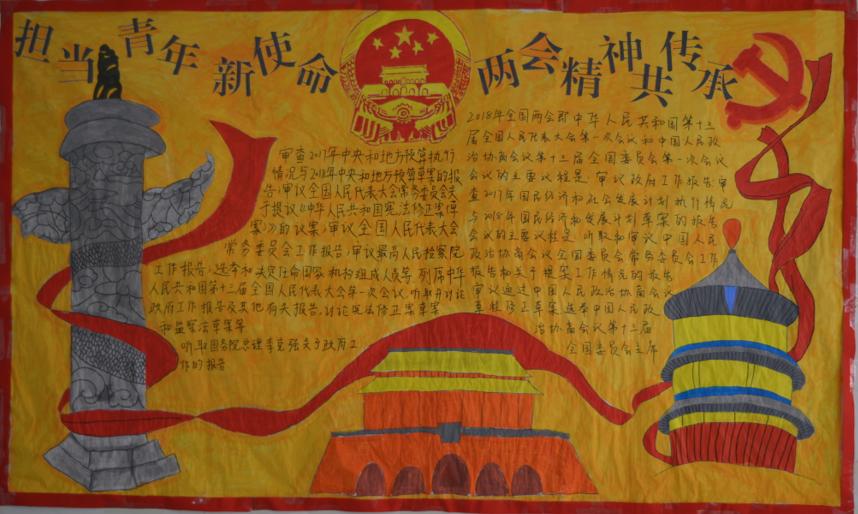 担当青年 新使命 两会精神共传承
审查2017年中央和地方预算执行
情况与2018年中央和地方预算草案的报
告;审议全国人民代表大会常务委员会关
于提议《中华人民共和国宪法修正案(草
案)》的议案;审议全国人民代表大会
常务委员会工作报告;审议最高人民检察院
工作报告;选举和决定任命国家机构组成人员等 列席中华
人民共和国第十三届全国人民代表大会第一次会议,听取并讨论
政府工作报告及其他有关报告,讨论宪法修正案草案
和监察法草案等
听取国务院总理李克强关于政府工
作的报告
2018年全国两会即中华人民共和国第十三
届全国人民代表大会第一次会议和中国人民政
治协商会议第十三届全国委员会第一次会议
会议的主要议程是:审议政府工作报告;审
查2017年国民经济和社会发展计划执行情况
与2018年国民经济和发展计划草案的报告
会议的主要议程是 听取和审议中国人民
政治协商会议全国委员会常务委员会工作
报告和关于提案工作情况的报告
审议通过中国人民政治协商会议
章程修正草案 选举中国人民政
治协商会议第十三届
全国委员会主席